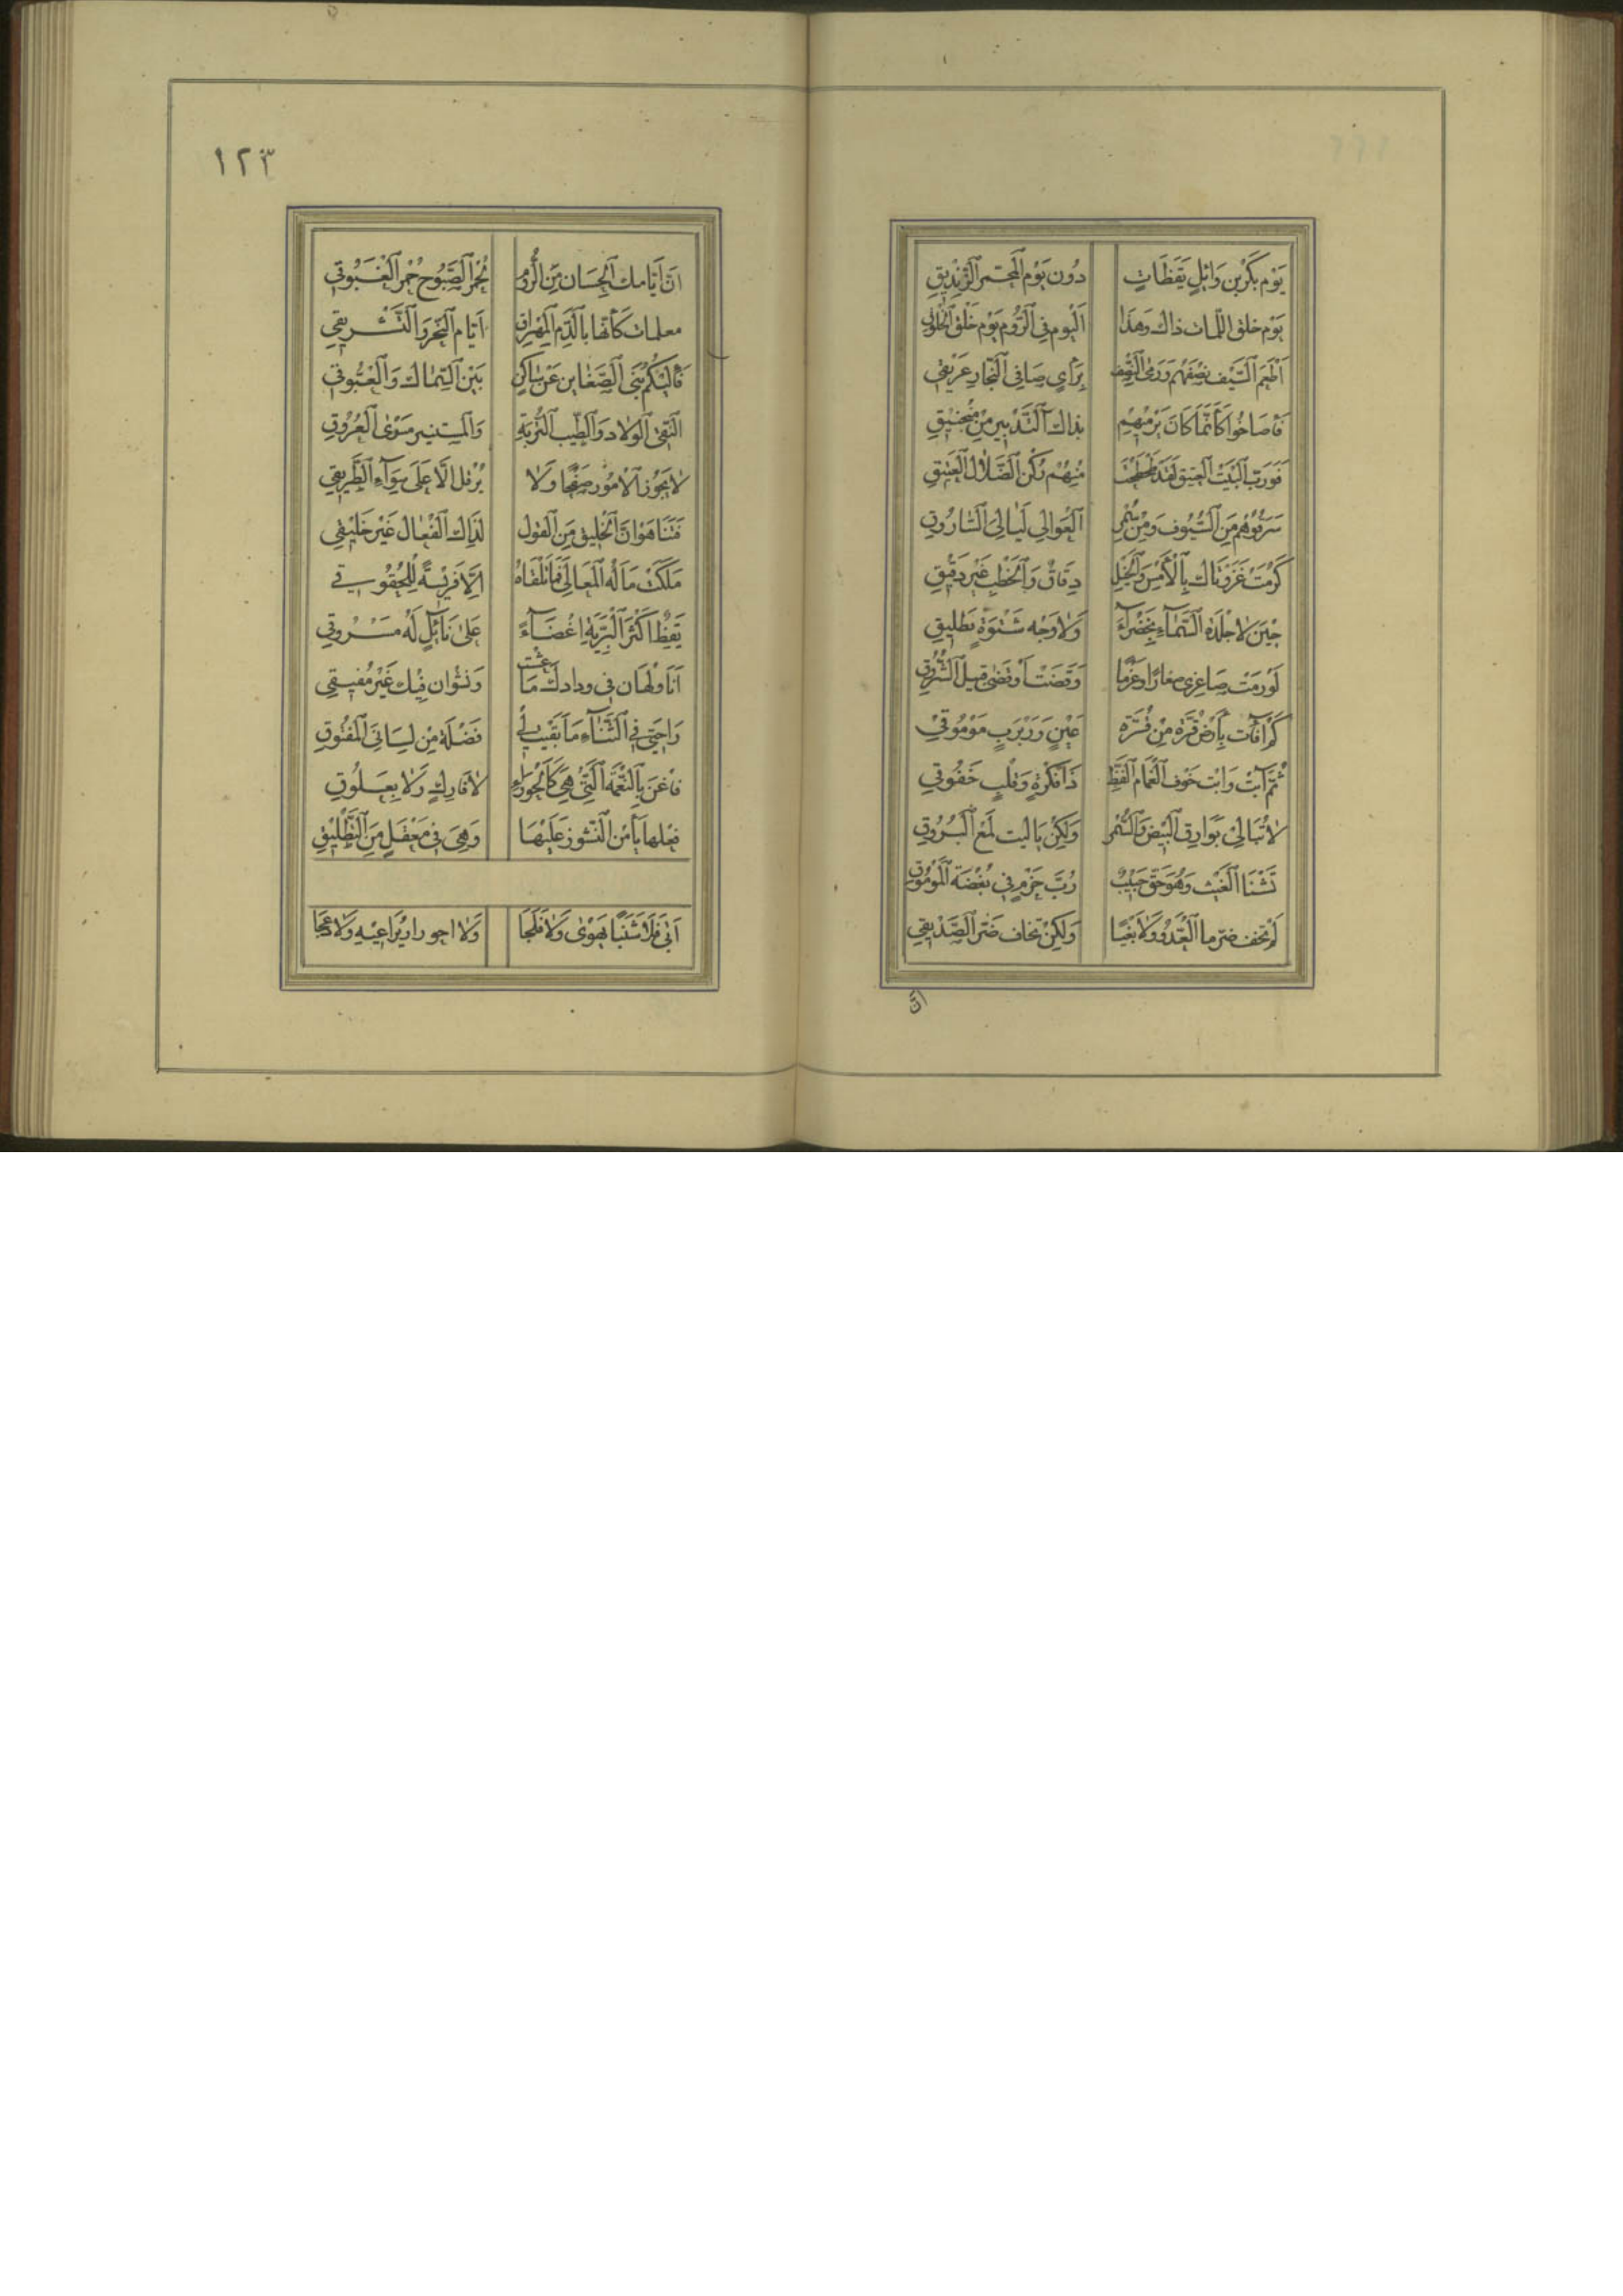 يَوْم بَكْرِبْن وَائِلٍ بِقِضَاتٍ دُون يَوْم الْمُحَمَّر الزِّنْدِيقِ
يَوْم حلق اللمات ذاك وَهَذَا الْيوم في الرُّوم يَوْم حَلْق الْحُلُوقِ
اَطْعَم السَّيْف نِصْفَهُم وَرَمَى النِّصْف بِرَأيٍ صَافِي النِّجَارِ عَرِيْقِ
فَاصَاخُوا كَأَنَّمَا كَانَ يَرْمِيْهِم بذاك التَّدْبِير مِنْ مَنْجَنِيْقِ
فَوَرَبِّ الْبَيْت الْعَتِيق لَقَدْ طَحْطَحْتَ مِنْهُمْ رُكْن الضَّلَالِ الْعَتِيقِ
سَرَقُوهُم مِنَ السُّيُوف وَمِنْ سُمْرِ الْعَوَالِي لَيَالِيَ السَّارُوقِ
كَرُمَتْ غَزْوَتَاك بِالْأَمْس وَالْخَيْل دِقَاقٌ وَالْخَطْب غَيْر دَقِيْقِ
حِيْنَ لَا جِلْدَة السَّمَاءِ بِخَضْرَاءَ وَلَا وَجْه شَتْوَةٍ بَطَلِيقِ
لَوْرَمَتْ صَاغِرى مغارًا وَعَزْمًا وَقَضَتْ اَوْقَضَى قبيل الشُّرُوقِ
كَمْ اَفَأَت مِنْ اَرْضِ قُرَّة مِنْ قُرَّة عَيْنٍ وَرَبْرَبٍ مَوْمُوقِ
ثُمَّ آبَتْ وَابْت خَوْف الْغَمَام الْفَظِّ ذَا فِكْرَةٍ وَقَلْبٍ خَفُوقِ
لَا تُبَالِيْ بَوَارِق الْبِيْض وَالسُّمْر وَلَكِنْ بَاليت لَمْع الْبُرُوقِ
تَشْنَا الْغَيْث وَهْوَ حَقّ حَبِيْبٌ رُبَّ حَزْمٍ فِي بُغْضَة الْمَوْمُوقِ
لَمْ تخف ضرّ ما الْعَدُوّ وَلَا بَغْيًا وَلَكِنْ تخاف ضَرّ الصَّدِيقِ
انّ
١٢٣
انّ اَيَّامك الْحِسَان مِنَ الرُّومِ لحُمْر الصَّبُوح حُمْر الْغَبُوقِ
معلمات كَأنَّها بِالدَّم الْمُهْرَاق اَيَّام النَّحْر وَالتَّشْرِيقِ
فَاِلَيْكُمْ بَنِي الضَّغَاين عَنْ سَاكِن بَيْن السِّمَاك وَالْعَيُّوقِ
النَّقِيّ الْولاد وَالطَّيِّب التُّرْبَةِ وَالمستنير مَسْرَى الْعُرُوقِ
لَا يَجُوز الْامُوْر صَفْحًا وَلَا يُرْقل الَّا عَلَى سَوَآءِ الطَّرِيقِ
فَتَنَاهَوْا انّ الْخَلِيق مِنَ الْقول لَذَاك الْفِعَال غَيْر خَلِيْقِ
مَلَكَتْ مَالَهُ الْمَعَالِي فَمَا تَلْقَاهُ اِلَّا فَرِيْسَةً لِلْحُقُوقِ
يَقِظٌ اَكْثَرَ الْبَرِيَّةِ اِغْضَآءً عَلَى نَآئِلٍ لَهُ مَسْرُوقِ
اَنَا وَلْهَان فِي ودادك مَا عشت وَنَشْوان فِيْك غَيْر مُفِيقِ
رَاحَتِي فِي الثَّنَآءِ مَا بَقِيَتْ لِي فَضْلَة مِن لِسَانِيَ الْمَفْتُوقِ
فَاغْنَ بِالنِّعْمَة الَّتِيْ هِيَ كَالْحَوْرَاء لَا فَارِكٍ وَلَا بِعَلُوقِ
بَعْلها يَأْمَن النُّشُوز عَلَيْهَا وَهْيَ فِي مَعْقَل مِنَ التَّطْلِيْقِ
اَبَى فَلَا شَنَبًا يَهْوَى وَلَا فَلَجَا وَلَا احورارًا يُرَاعِيْهِ وَلَا دعجَا